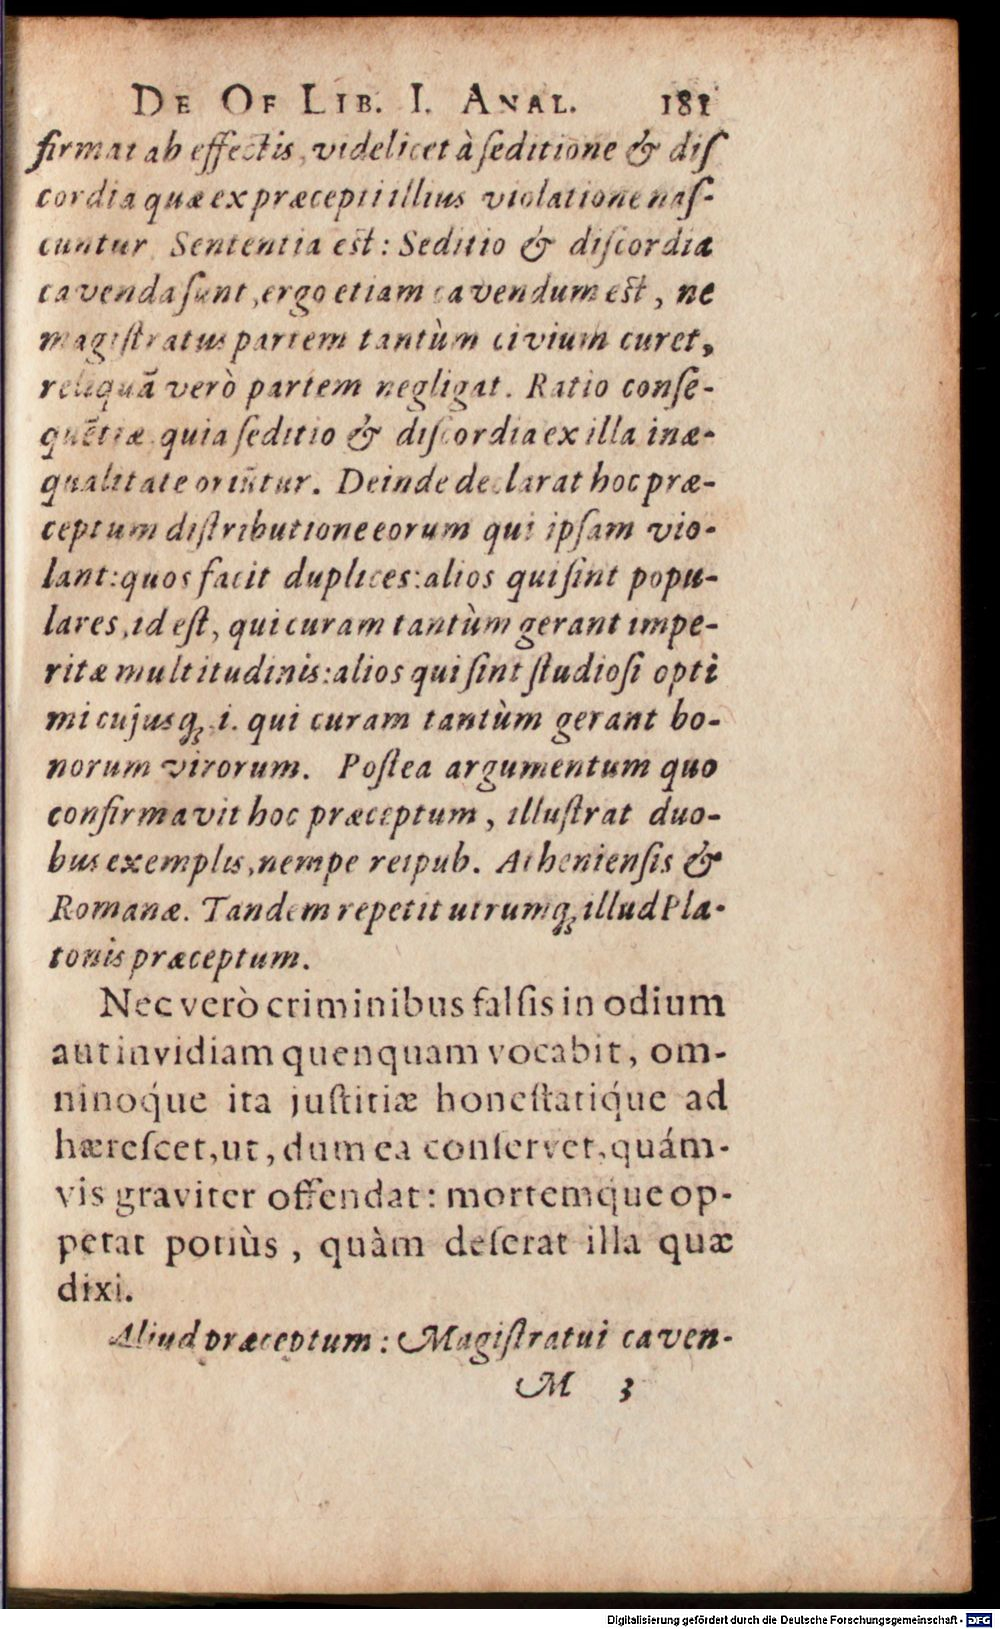 DE OF LIB. I. ANAL. 181
firmat ab effectis, videlicet à ſeditione & diſ
cordia quæ ex præcepti illius violatione naſ-
cuntur Sententia est: Seditio & diſcordia
cavenda ſunt, ergo etiam cavendum est, ne
magiſtratus partem tantùm civium curet,
reliquã verò partem negligat. Ratio conſe-
quẽtiæ quia ſeditio & diſcordia ex illa inæ-
qualitate oriũtur. Deinde declarat hoc præ-
ceptum diſtributione eorum qui ipſam vio-
lant: quos facit duplices: alios qui ſint popu-
lares, id eſt, qui curam tantùm gerant impe-
ritæ multitudinis: alios qui ſint ſtudioſi opti
mi cujusq; i. qui curam tantùm gerant bo-
norum virorum. Poſtea argumentum quo
confirmavit hoc præceptum, illuſtrat duo-
bus exemplis, nempe reipub. Athenienſis &
Romanæ. Tandem repetit utrumq; illud Pla-
tonis præceptum.
Nec verò criminibus falſis in odium
aut invidiam quenquam vocabit, om-
ninoq́ue ita juſtitiæ honeſtatiq́ue ad
hæreſcet, ut, dum ea conſervet, quám-
vis graviter offendat: mortemque op-
petat potiùs, quàm deſerat illa quæ
dixi.
Aliud præceptum: Magiſtratui caven-
M 3
Digitalisierung gefördert durch die Deutsche Forschungsgemeinschaft - DFG